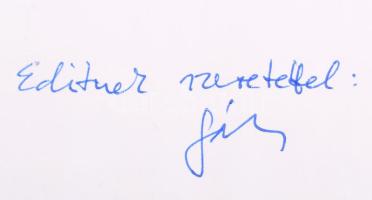 Editnek szeretettel: